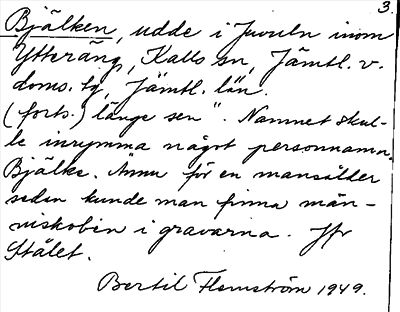 3.
Bjälken, udde i Juvuln inom
Ytteräng, Kalls sn, Jämtl. v.
doms. tg, Jämtl. län.
(forts.) länge sen". Namnet skul-
le inrymma något personnamn,
Bjälke. Ännu för en mansålder
sedan kunde man finna män-
niskoben i gravarna. Jfr
Stålet.
Bertil Flemström 1949.